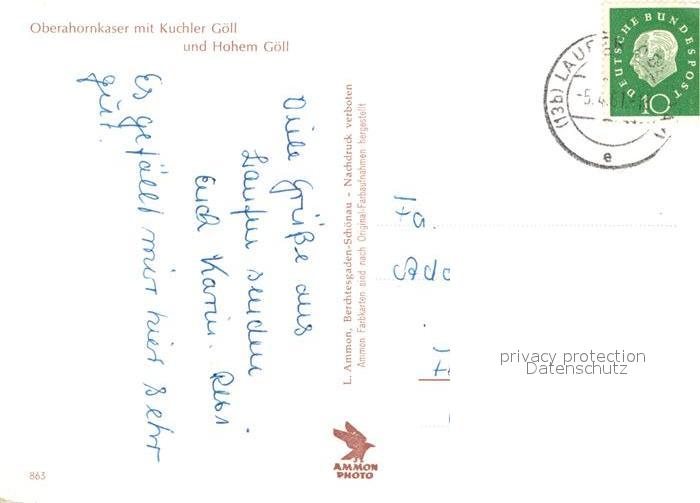 Oberahornkaser mit Kuchler Göll
und Hohem Göll
Viele Grüße aus
Laufen senden
Euch Karin. Resi.
Es gefällt mir hier sehr
gut!
L. Ammon, Berchtesgaden-Schönau - Nachdruck verboten
Ammon Farbkarten sind nach Original-Farbaufnahmen hergestellt
AMMON
PHOTO
863
DEUTSCHE BUNDESPOST
10
(13b) LAUF
-5.4.61
e
Fa.
privacy protection
Datenschutz